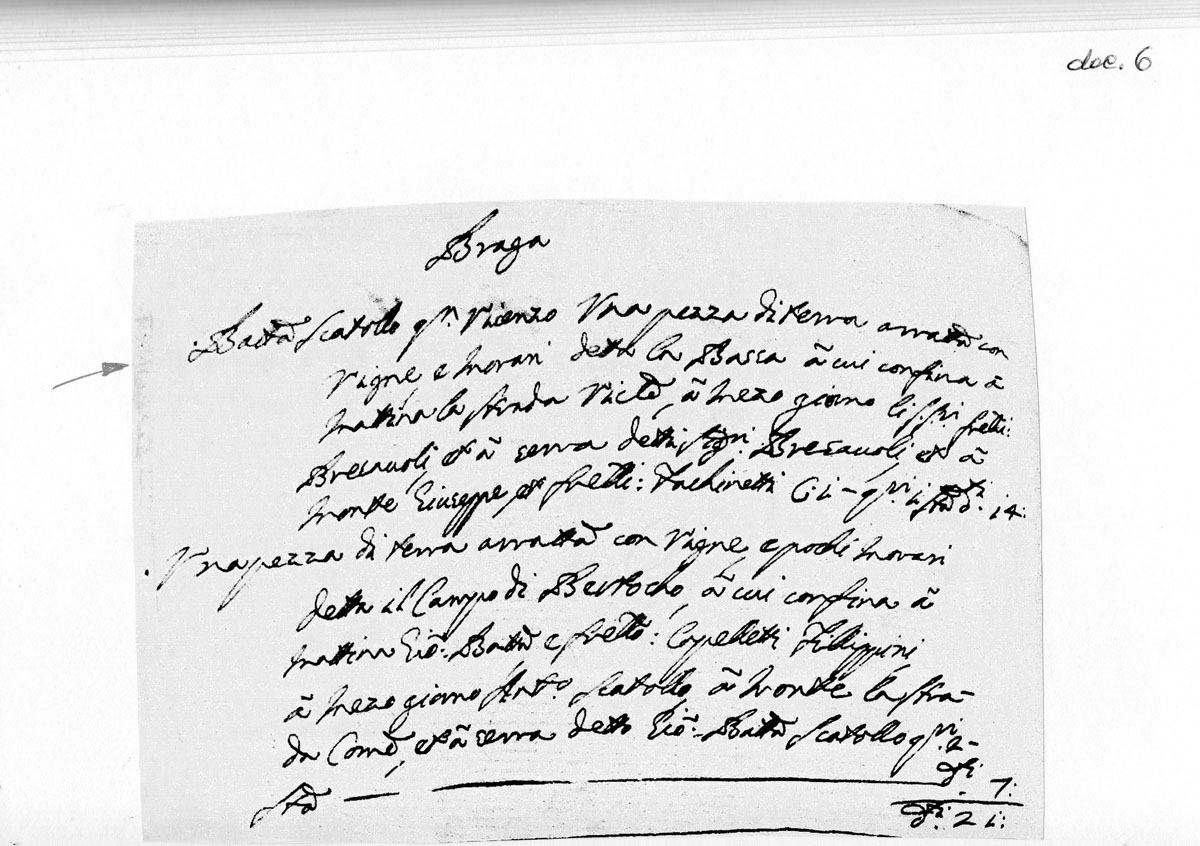 doc. 6
Braga
Batta Scatollo qm. Vicenzo Una pezza di terra arratta con
Vigne, e Morari detta la Bassa à cui confina à
Mattina la strada Vicle, à Mezo giorno li fretti:
Bresauoli, et à serra detti Bresauoli, et à
Monte Giuseppe, et fretti: Fachinetti C: i - i 14:
Una pezza di terra arratta con Vigne, e pochi Morari
detta il Campo di Bertocho, à cui confina à
Mattina Gio: Batta e fretto: Capelletti Filippini,
à Mezo giorno Anto. Scatollo, à Monte la stra-
da Come, et à serra detto Gio: Batta Scatollo 2-
7:
2 i: